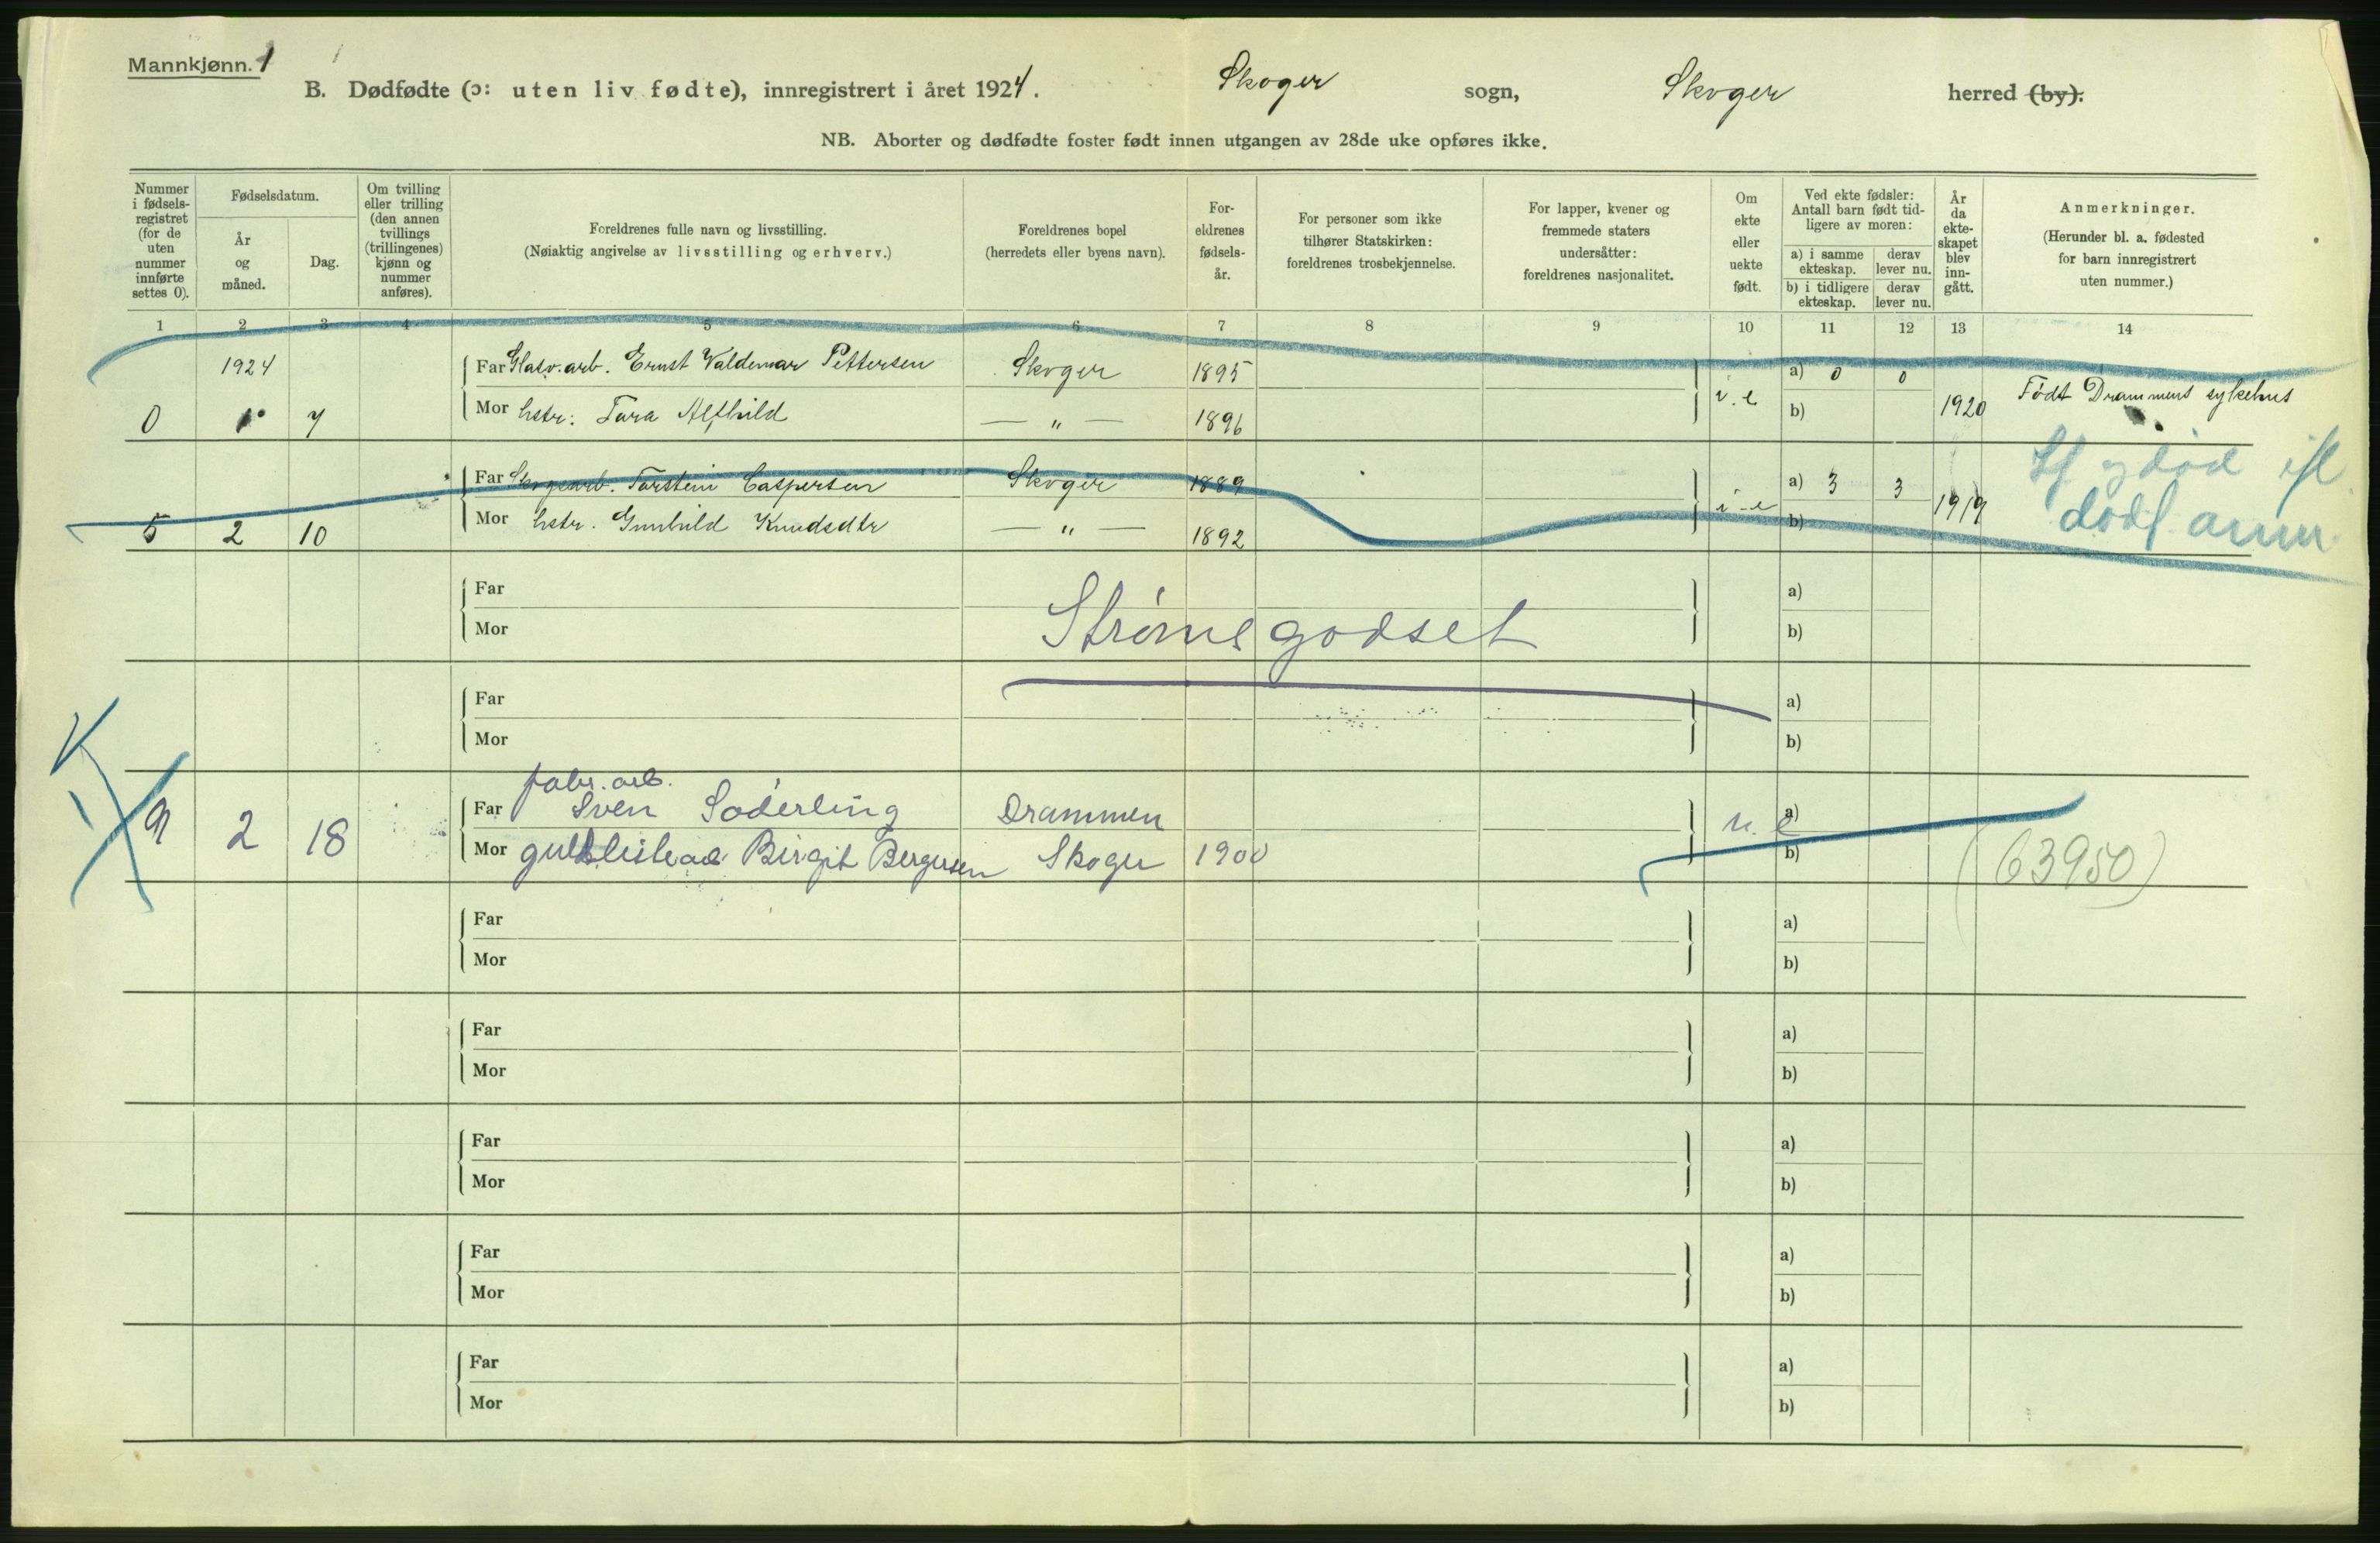 Mannkjønn. 1
B. Dødfødte (ɔ: uten liv fødte), innregistrert i året 1924. Skoger sogn, Skoger herred (by).
NB. Aborter og dødfødte foster født innen utgangen av 28de uke opføres ikke.
Nummer i fødsels-registret (for de uten nummer innførte settes 0).
Fødselsdatum.
År og måned.
Dag.
Om tvilling eller trilling (den annen tvillings (trillingenes) kjønn og nummer anføres).
Foreldrenes fulle navn og livsstilling.
(Nøiaktig angivelse av livsstilling og erhverv.)
Foreldrenes bopel
(herredets eller byens navn).
For-eldrenes fødsels-år.
For personer som ikke
tilhører Statskirken:
foreldrenes trosbekjennelse.
For lapper, kvener og
fremmede staters
undersåtter:
foreldrenes nasjonalitet.
Om ekte eller uekte født.
Ved ekte fødsler:
Antall barn født tid-
ligere av moren:
a) i samme ekteskap.
derav lever nu.
b) i tidligere ekteskap.
derav lever nu.
År da ekte-skapet blev inn-gått.
Anmerkninger.
(Herunder bl. a. fødested
for barn innregistrert
uten nummer.)
1 2 3 4 5 6 7 8 9 10 11 12 13 14
1924 Far Glasv. arb. Ernst Valdemar Pettersen Skoger 1895 a) 0 0
0 1 7 Mor hstr: Tora Alfhild — " — 1896 i. e b) 1920 Født Drammens sykehus
Far Skogsarb. Torstein Caspersen Skoger 1889 a) 3 3
5 2 10 Mor hstr. Gunhild Knudsdtr — " — 1892 i - e b) 1919
død
Far a)
Mor b)
Strømsgodset
Far a)
Mor b)
fabr. arb.
Far Sven Søderling Drammen a)
9 2 18 Mor Birgit Bergersen Skoger 1900 u. e b) (63950)
Far a)
Mor b)
Far a)
Mor b)
Far a)
Mor b)
Far a)
Mor b)
Far a)
Mor b)